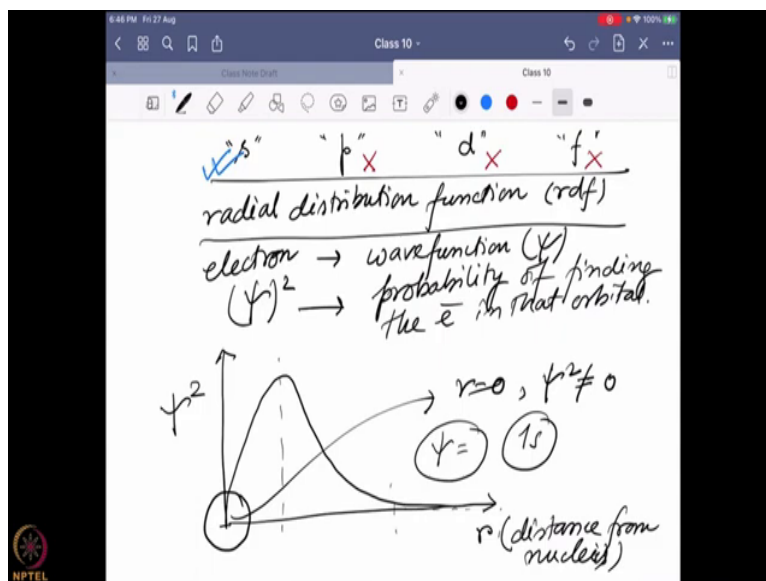 6:46 PM Fri 27 Aug
100%
Class 10
Class Note Draft
Class 10
"s" "p" x "d" x "f" x
radial distribution function (rdf)
electron → wavefunction (ψ)
(ψ)² → probability of finding
the e̅ in that orbital.
ψ²
r=0, ψ²≠0
ψ= 1s
r (distance from
nucleus)
NPTEL